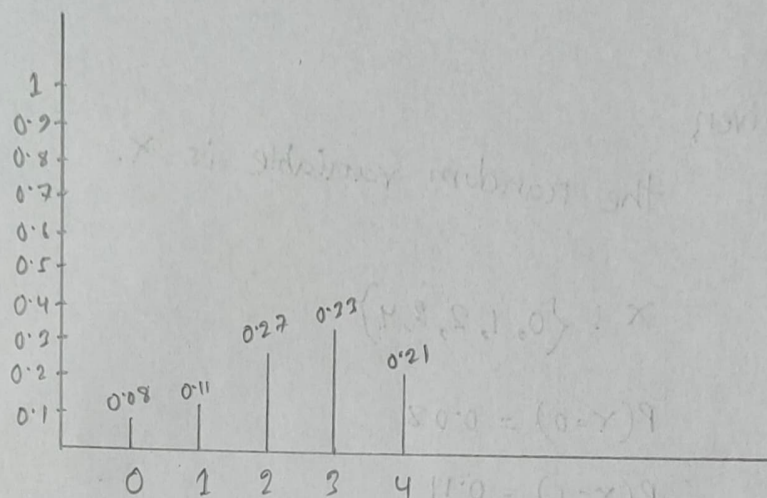 1
0.9
0.8
0.7
0.6
0.5
0.4
0.3
0.2
0.1
0.08 0.11 0.27 0.33 0.21
0 1 2 3 4